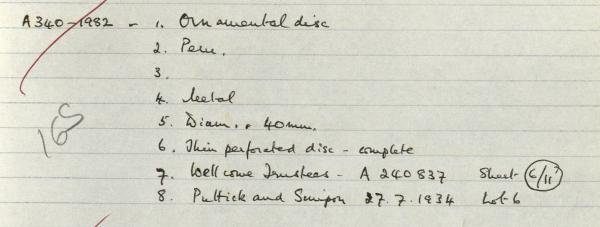 A340-1982 - 1. Ornamental disc
2. Peru.
3.
4. Metal
5. Diam.. 40mm.
6. Thin perforated disc - complete
165
7. Wellcome Trustees - A 240837 Sheet 6/11?
8. Puttick and Simpson 27.7.1934 Lot 6